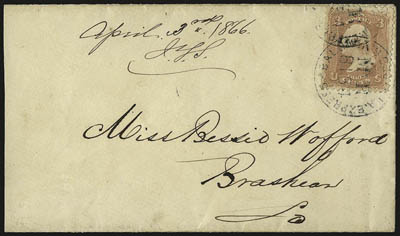 April 3rd 1866.
J.G.S.
Miss Bessie Wofford
Brashear
La